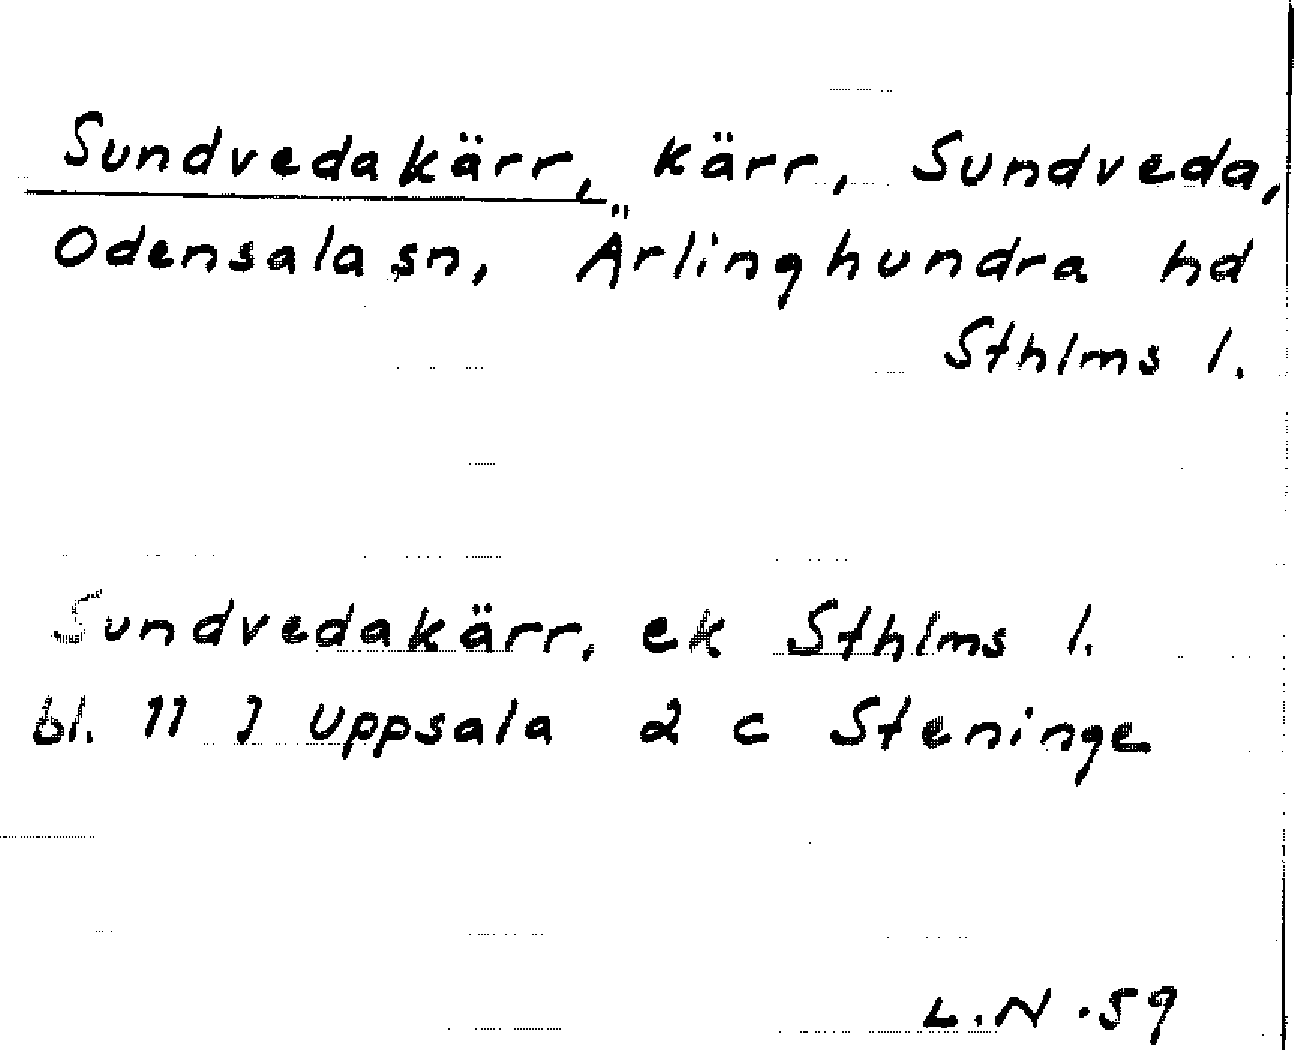 Sundvedakärr, kärr, Sundveda,
Odensala sn, Ärlinghundra hd
Sthlms l.
Sundvedakärr, ek Sthlms l.
bl. 11 J Uppsala 2 c Steninge
L.N. 59